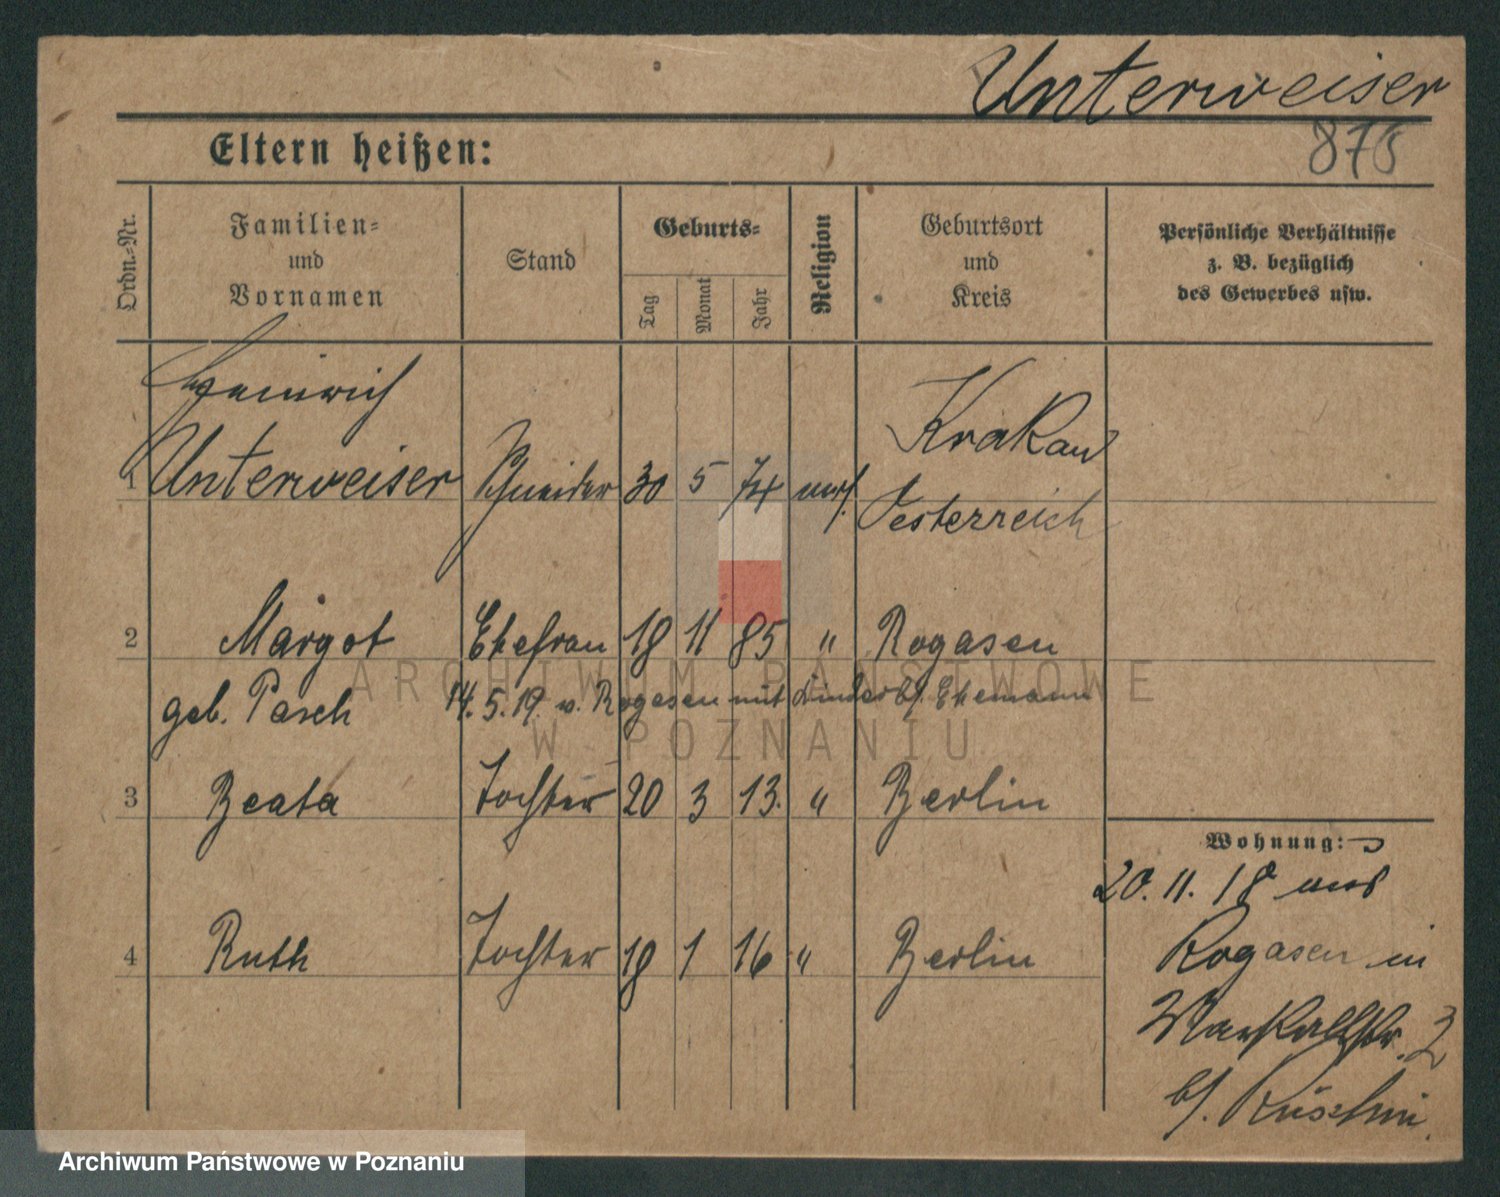 Unterweiser
875
Eltern heißen:
Ordn.-Nr.
Familien-
und
Vornamen
Stand
Geburts-
Tag
Monat
Jahr
Religion
Geburtsort
und
Kreis
Persönliche Verhältnisse
z. B. bezüglich
des Gewerbes usw.
Heinrich
1 Unterweiser Schneider 30 5 74 mos. Krakau
Oesterreich
2 Margot Ehefrau 18 11 85 " Rogasen
geb. Pasch 14.5.19. v. Rogasen mit Kinder b/. Ehemann
3 Beata Tochter 20 3 13. " Berlin
4 Ruth Tochter 18 1 16 " Berlin
Wohnung:
20.11.18 aus
Rogasen in
b/.
ARCHIWUM PAŃSTWOWE
W POZNANIU
Archiwum Państwowe w Poznaniu